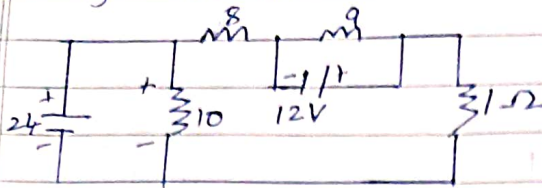 8 9
+ + - +
24 10 12V 1Ω
- -